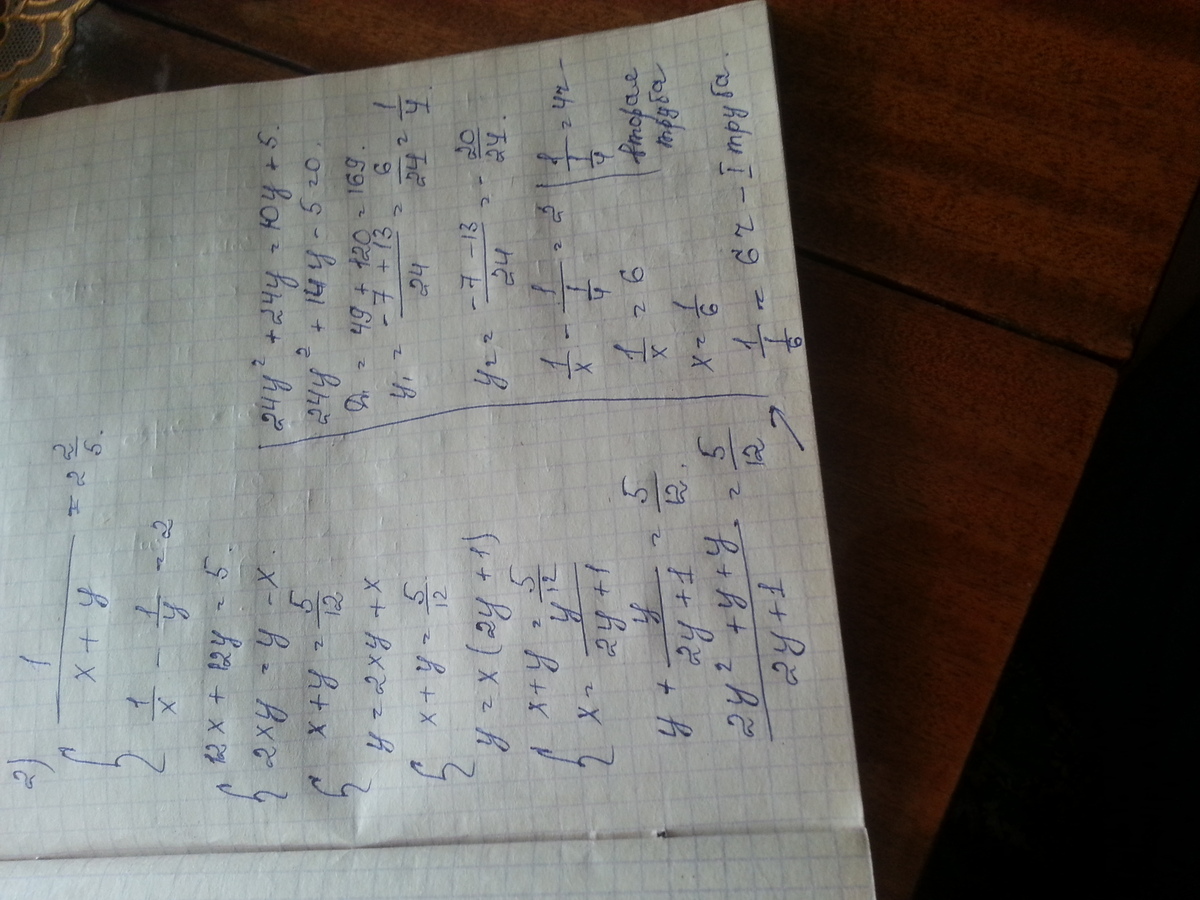 2)
{ 1/(x + y) = 2 2/5.
1/x - 1/y = 2
{ 12x + 12y = 5.
2xy = y - x.
{ x + y = 5/12
y = 2xy + x
{ x + y = 5/12
y = x(2y + 1)
{ x + y = 5/12
x = y/(2y + 1)
y + y/(2y + 1) = 5/12.
(2y² + y + y)/(2y + 1) = 5/12
24y² + 24y = 10y + 5.
24y² + 14y - 5 = 0.
D₁ = 49 + 120 = 169.
y₁ = (-7 + 13)/24 = 6/24 = 1/4.
y₂ = (-7 - 13)/24 = -20/24.
1/x - 1/(1/4) = 2
1/x = 6
x = 1/6
1/(1/4) = 4ч -
вторая
труба
1/(1/6) = 6ч - I труба.